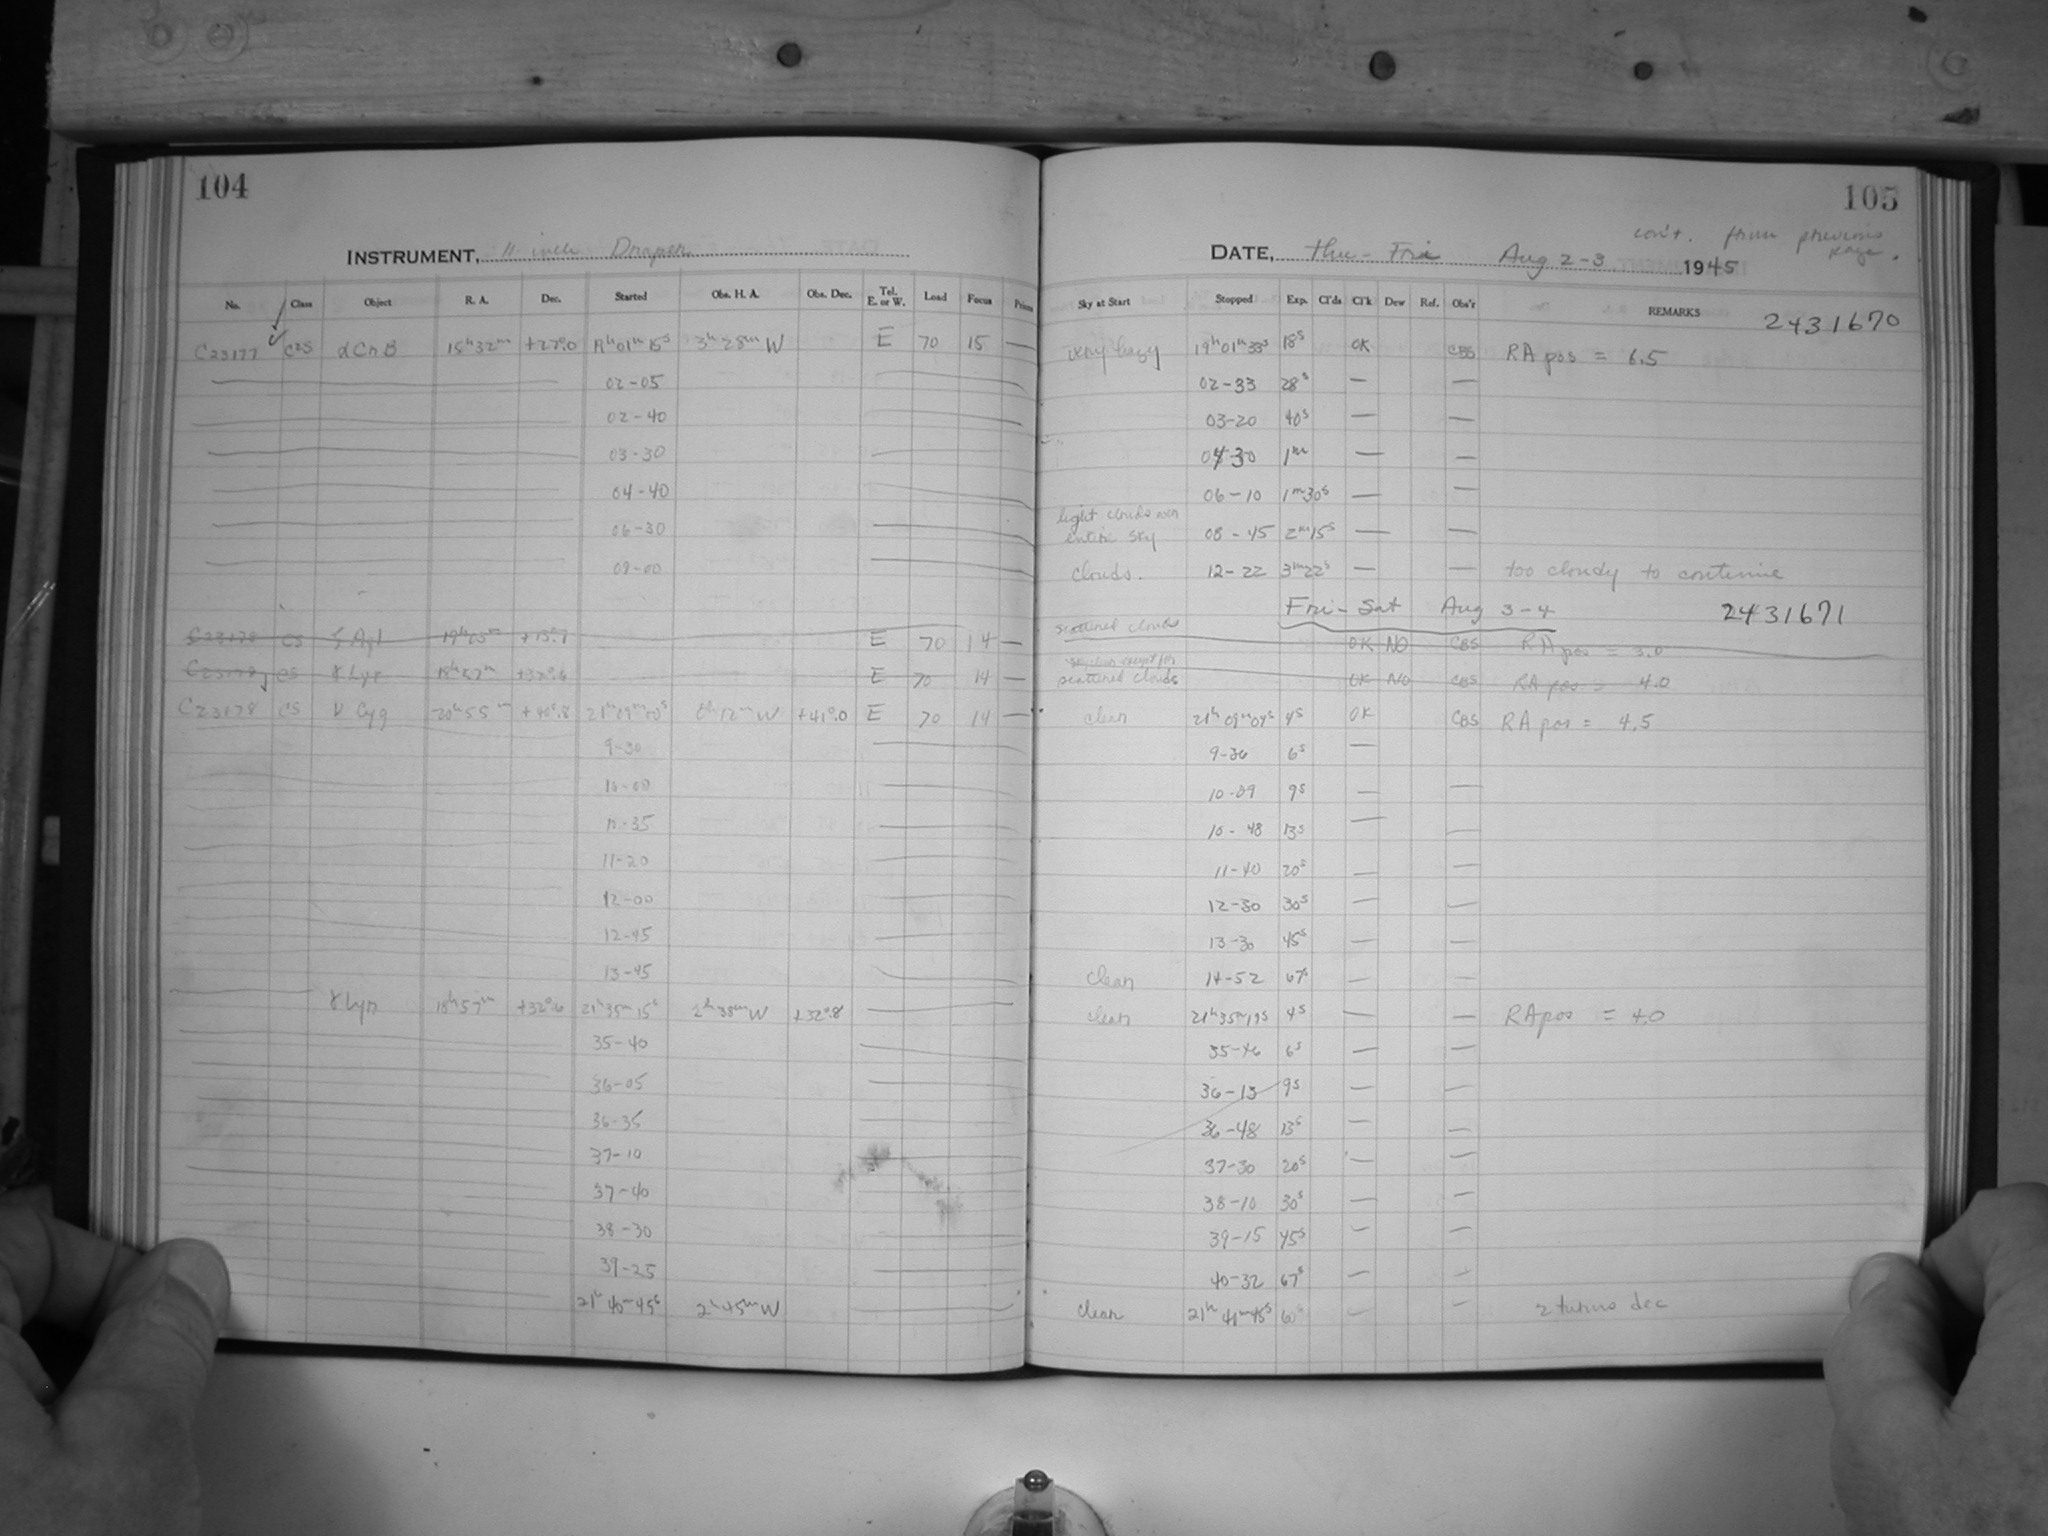 104
INSTRUMENT, 11 inch Draper
No. Class Object R. A. Dec. Started Obs. H. A. Obs. Dec. Tel. E. or W. Load Focus Prism
C23177 C2S αCrB 15h32m +27°.0 19h01m15s 3h28mW E 70 15 —
02-05
02-40
03-30
04-40
06-30
09-00
C23178 CS ζ Aql 19h03m +13°.7 E 70 14 —
C23178 CS γ Lyr 18h57m +32°.6 E 70 14 —
C23178 CS ν Cyg 20h55m +40°.8 21h09m00s 0h12mW +41°.0 E 70 14 —
9-30
10-00
10-35
11-20
12-00
12-45
13-45
γ Lyr 18h57m +32°.6 21h35m15s 2h38mW +32°.8
35-40
36-05
36-35
37-10
37-40
38-30
39-25
21h40m45s 2h45mW
105
con't. from previous page.
DATE, Thu - Fri Aug 2-3 1945
Sky at Start Stopped Exp. Cl'ds Cl'k Dew Ref. Obs'r REMARKS
2431670
very hazy 19h01m33s 18s OK CBS RA pos = 6.5
02-33 28s — —
03-20 40s — —
04 30 1m — —
06-10 1m30s — —
light clouds over entire sky 08-45 2m15s — —
clouds. 12-22 3m22s — — too cloudy to continue
Fri - Sat Aug 3-4 2431671
scattered clouds OK NO CBS RA pos = 3.0
scattered clouds OK NO CBS RA pos = 4.0
clear 21h09m04s 4s OK CBS RA pos = 4.5
9-36 6s —
10-09 9s — —
10-48 13s — —
11-40 20s — —
12-30 30s — —
13-30 45s — —
clear 14-52 67s — —
clear 21h35m19s 4s — — RA pos = 4.0
35-46 6s — —
36-13 9s — —
36-48 13s — —
37-30 20s — —
38-10 30s — —
39-15 45s — —
40-32 67s — —
clear 21h41m45s 60s — — 2 turns dec